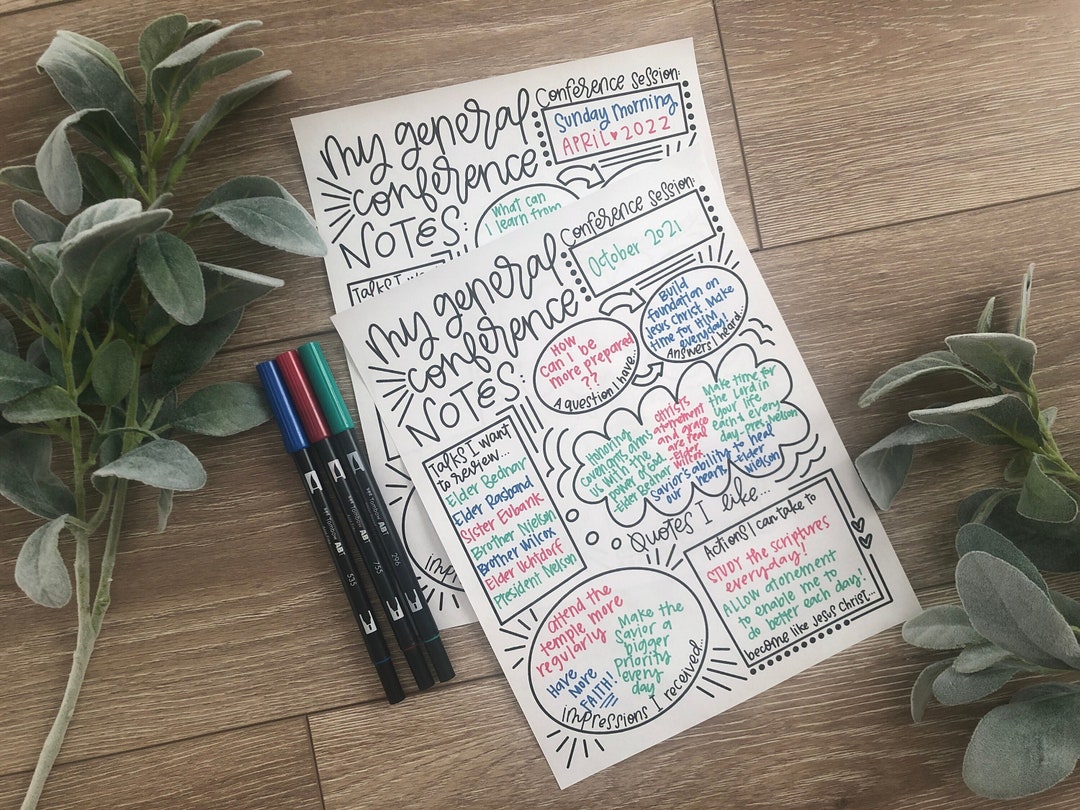 my general
conference
NOTES:
Conference Session:
Sunday morning
APRIL♥2022
What can
I learn from
Talks I w
my general
conference
NOTES:
Conference Session:
October 2021
HOW
can I be
more prepared
??
A question I have...
Build
foundation on
Jesus Christ. Make
time for HIM
everyday!
Answers I heard...
Talks I want
to review...
Elder Bednar
Elder Rasband
Sister Eubank
Brother Nielson
Brother Wilcox
Elder Uchtdorf
President Nelson
Honoring
covenants arms
us with the
power of God.
-Elder Bednar
Christ's
atonement
and grace
are real
-Elder
Wilcox
Make time for
the Lord in
your life
each & every
day-Pres. Nelson
Savior's ability to heal
our hearts -Elder
Nielson
Quotes I like...
Actions I can take to
STUDY the scriptures
everyday!
ALLOW atonement
to enable me to
do better each day!
become like Jesus Christ...
attend the
temple more
regularly
Make the
Savior a
bigger
priority
every
day
HAVE
MORE
FAITH!
impressions I received...
impressions
535
755
296
Tombow ABT